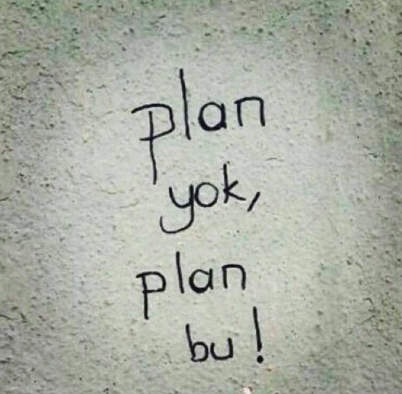 plan
yok,
plan
bu!